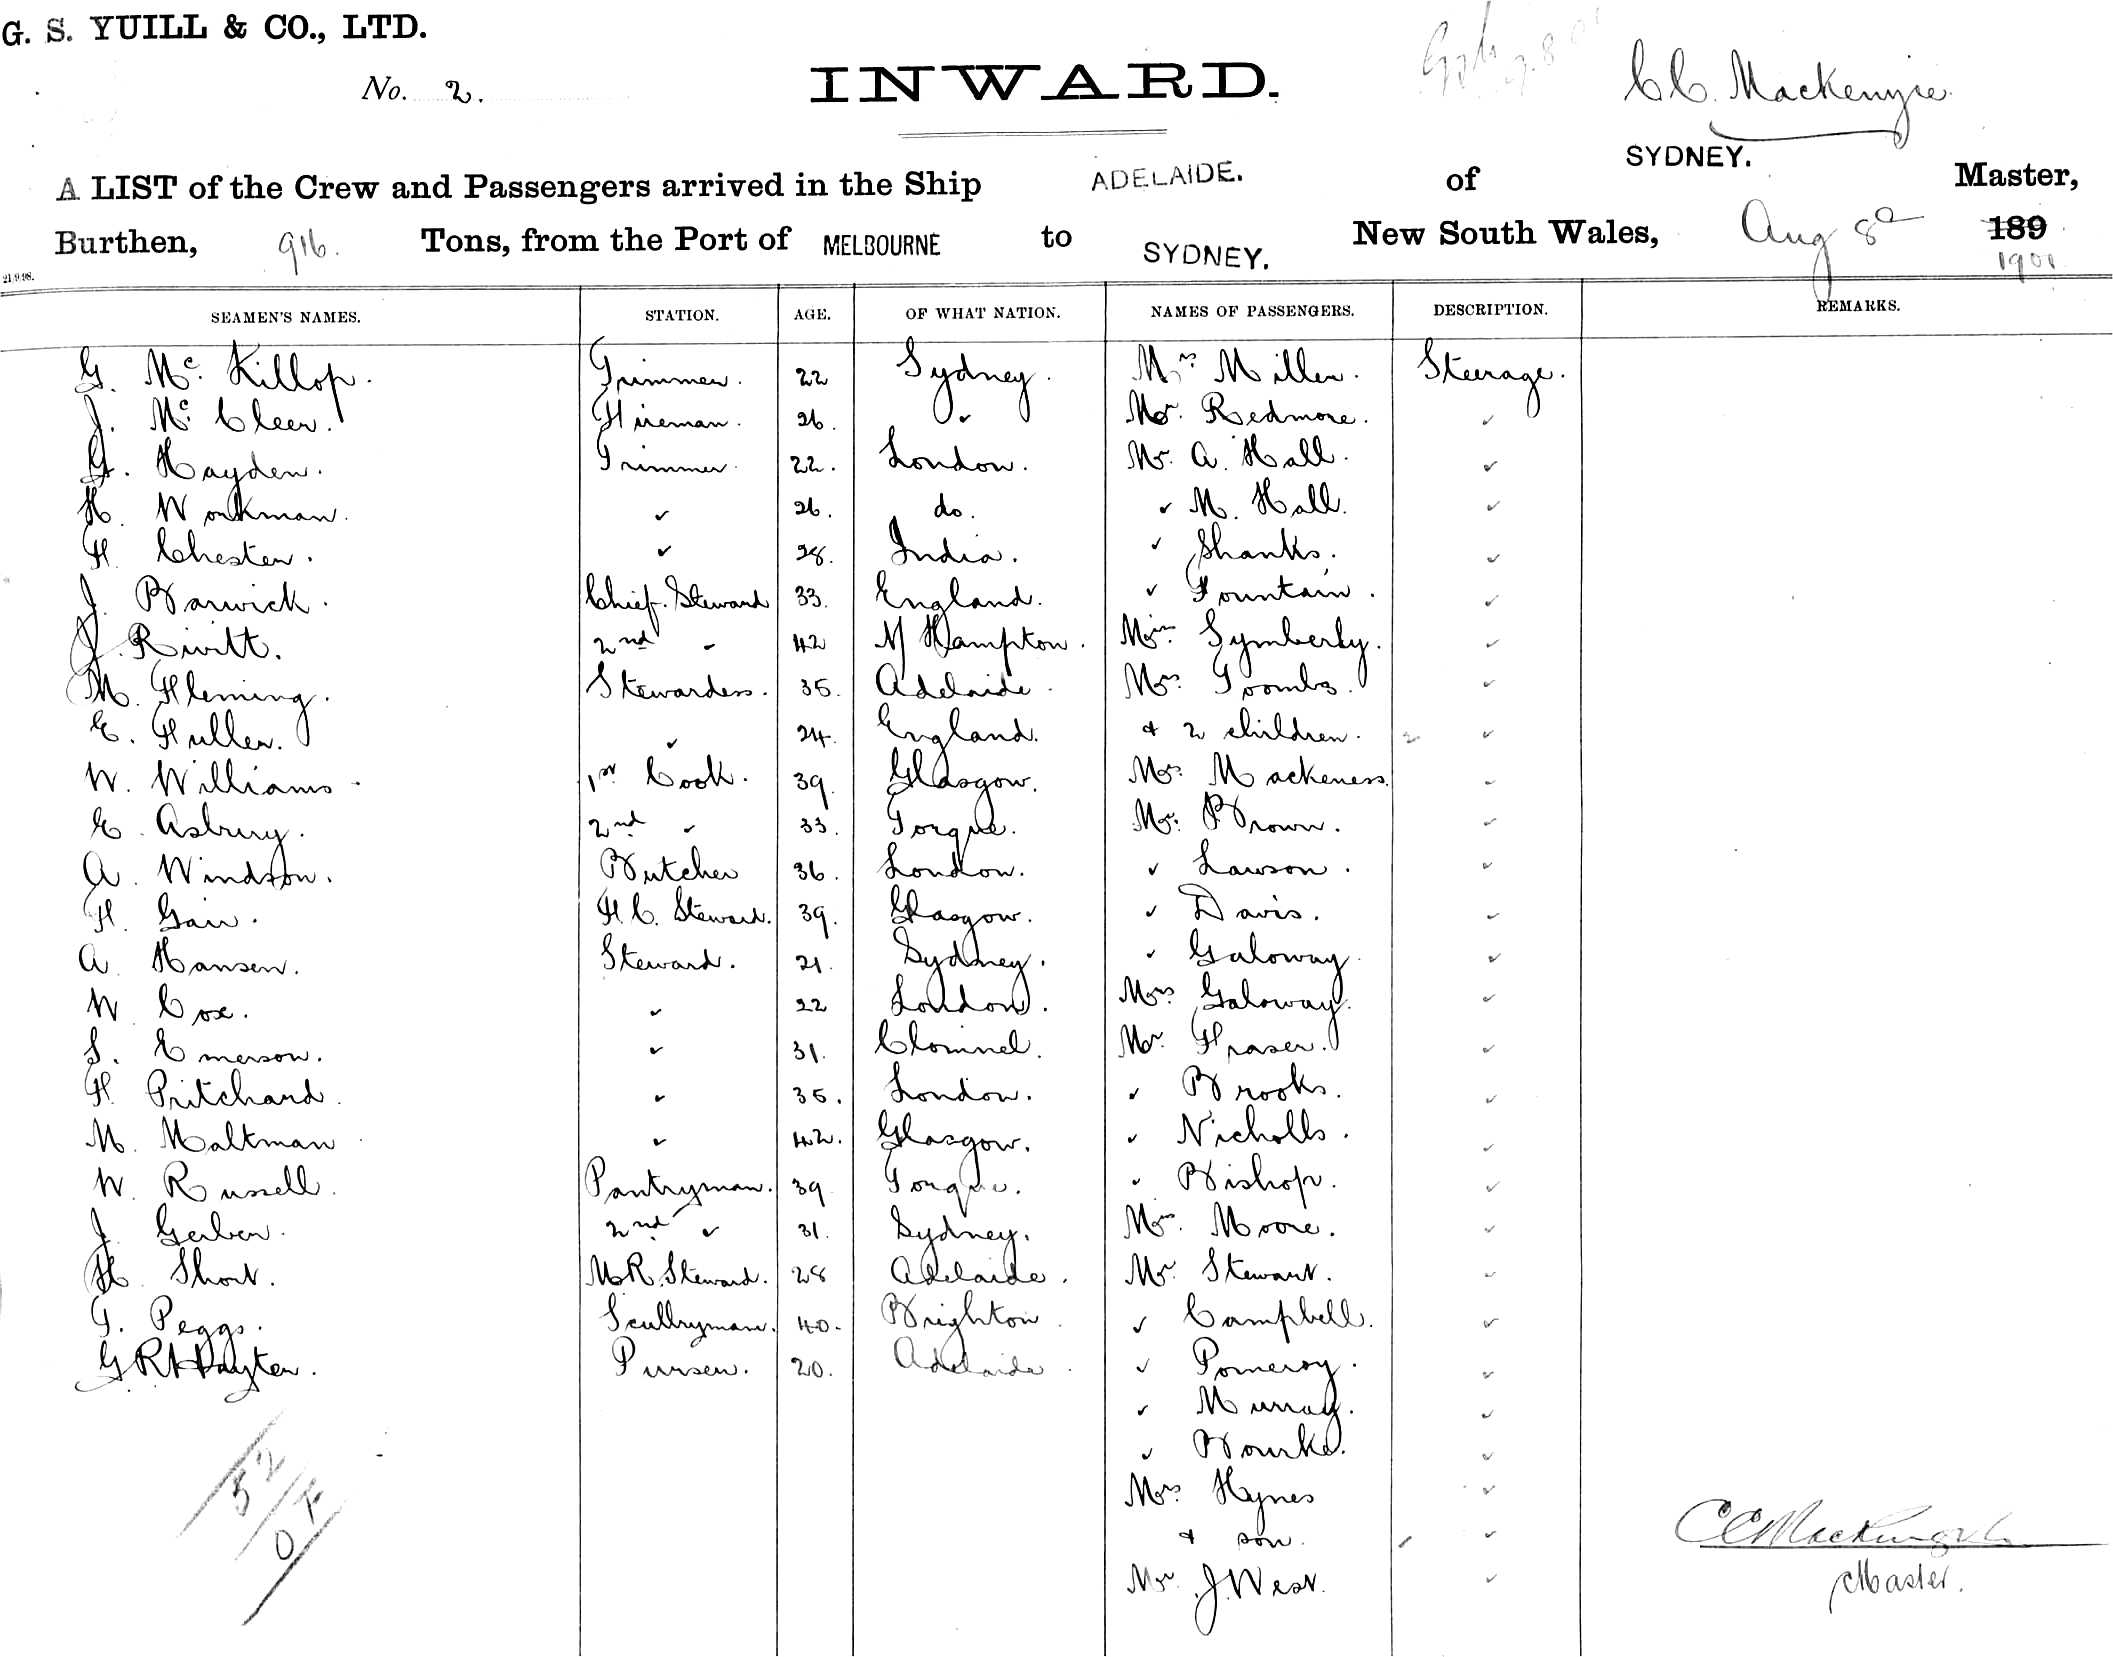 G. S. YUILL & CO., LTD.
No. 2.
INWARD.
C C. Mackenzie
SYDNEY.
A LIST of the Crew and Passengers arrived in the Ship ADELAIDE. of Master,
Burthen, 916. Tons, from the Port of MELBOURNE to SYDNEY. New South Wales, Aug 8th 189
1901
21.9.98.
SEAMEN'S NAMES. STATION. AGE. OF WHAT NATION. NAMES OF PASSENGERS. DESCRIPTION. REMARKS.
G. Mc. Killop. Trimmer. 22 Sydney. Mrs Miller. Steerage.
J. Mc. Cleer. Fireman. 26. " Mr. Redmore. "
G. Hayden. Trimmer. 22. London. Mr. A. Hall. "
H. Workman. " 26. do. " M. Hall. "
F. Chester. " 28. India. " Shanks. "
J. Barwick. Chief. Steward 33. England. " Fountain. "
J. Rivitt. 2nd " 42 N Hampton. Symberly. "
M. Fleming. Stewardess. 35. Adelaide. Mrs. Toombs. "
E. Fuller. " 24. England. & 2 children. 2 "
W. Williams 1st Cook. 39. Glasgow. Mrs. Mackeness. "
E. Asbury. 2nd " 33. Torque. Mr. Brown. "
A. Windson. Butcher 36. London. " Lawson. "
F. Gair. F. C. Steward. 39. Glasgow. " Davis. "
A. Hansen. Steward. 21. Sydney. " Galoway. "
W. Cox. " 22 London. Mrs Galoway. "
S. Emerson. " 31. Clomnel. Mr. Fraser. "
F. Pritchard. " 35. London. " Brooks. "
M. Maltman " 42. Glasgow. " Nicholls. "
W. Russell. Pantryman. 39. Torque. " Bishop. "
J. Gerber. 2nd " 31. Sydney. Moore. "
H. Short. M R. Steward. 28 Adelaide. Mr. Stewart. "
G. Peggs. Scullryman. 40. Brighton. " Campbell. "
G R Hayter. Purser. 20. Adelaide. " Pomeroy. "
" Murray. "
" Bourke. "
Mrs Hynes "
& son. "
Mr. J. West. "
52
CC Mackenzie
Master.